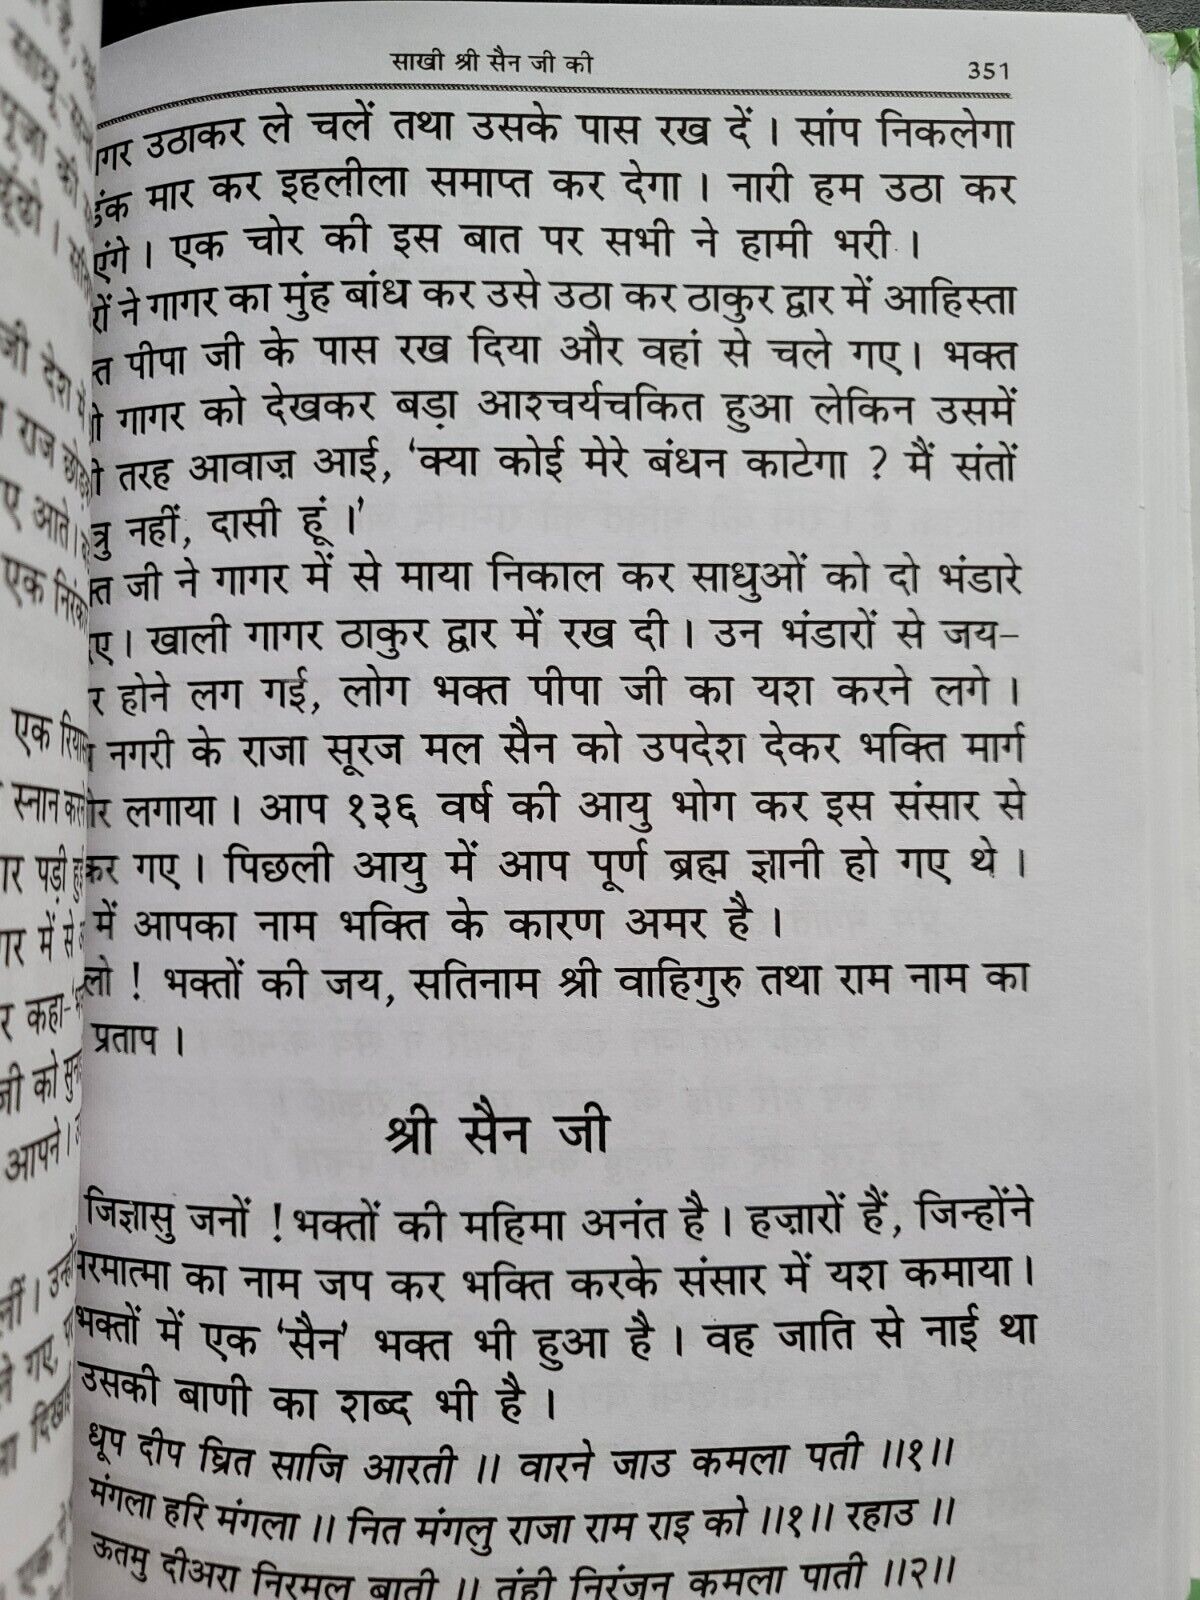 साखी श्री सैन जी की
351
उठाकर ले चलें तथा उसके पास रख दें । सांप निकलेगा
मार कर इहलीला समाप्त कर देगा । नारी हम उठा कर
एक चोर की इस बात पर सभी ने हामी भरी ।
ने गागर का मुंह बांध कर उसे उठा कर ठाकुर द्वार में आहिस्ता
पीपा जी के पास रख दिया और वहां से चले गए। भक्त
गागर को देखकर बड़ा आश्चर्यचकित हुआ लेकिन उसमें
तरह आवाज़ आई, ‘क्या कोई मेरे बंधन काटेगा ? मैं संतों
नहीं, दासी हूं ।’
जी ने गागर में से माया निकाल कर साधुओं को दो भंडारे
खाली गागर ठाकुर द्वार में रख दी । उन भंडारों से जय–
होने लग गई, लोग भक्त पीपा जी का यश करने लगे ।
नगरी के राजा सूरज मल सैन को उपदेश देकर भक्ति मार्ग
लगाया । आप १३६ वर्ष की आयु भोग कर इस संसार से
कर गए । पिछली आयु में आप पूर्ण ब्रह्म ज्ञानी हो गए थे ।
में आपका नाम भक्ति के कारण अमर है ।
लो ! भक्तों की जय, सतिनाम श्री वाहिगुरु तथा राम नाम का
प्रताप ।
श्री सैन जी
जिज्ञासु जनों ! भक्तों की महिमा अनंत है । हज़ारों हैं, जिन्होंने
परमात्मा का नाम जप कर भक्ति करके संसार में यश कमाया।
भक्तों में एक ‘सैन’ भक्त भी हुआ है । वह जाति से नाई था
उसकी बाणी का शब्द भी है ।
धूप दीप घ्रित साजि आरती ॥ वारने जाउ कमला पती ॥१॥
मंगला हरि मंगला ॥ नित मंगलु राजा राम राइ को ॥१॥ रहाउ ॥
ऊतमु दीअरा निरमल बाती ॥ तुंही निरंजन कमला पाती ॥२॥